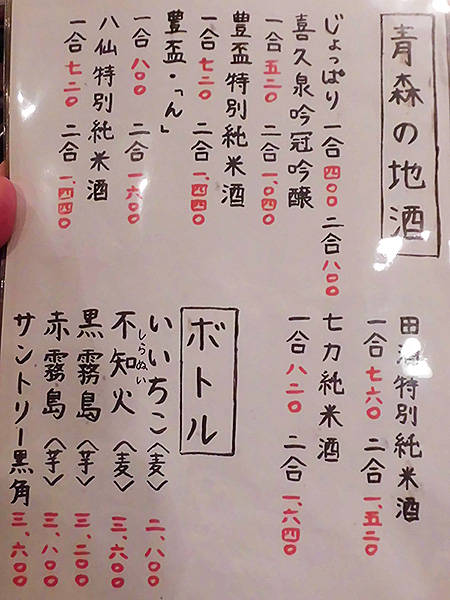 青森の地酒
じょっぱり 一合 四〇〇 二合 八〇〇
喜久泉吟冠吟醸
一合 五二〇 二合 一、〇四〇
豊盃特別純米酒
一合 七二〇 二合 一、四四〇
豊盃・「ん」
一合 八〇〇 二合 一、六〇〇
八仙特別純米酒
一合 七二〇 二合 一、四四〇
田酒特別純米酒
一合 七六〇 二合 一、五二〇
七力純米酒
一合 八二〇 二合 一、六四〇
ボトル
いいちこ〈麦〉 二、八〇〇
不知火〈麦〉 三、六〇〇
しらぬい
黒霧島〈芋〉 三、二〇〇
赤霧島〈芋〉 三、八〇〇
サントリー黒角 三、六〇〇